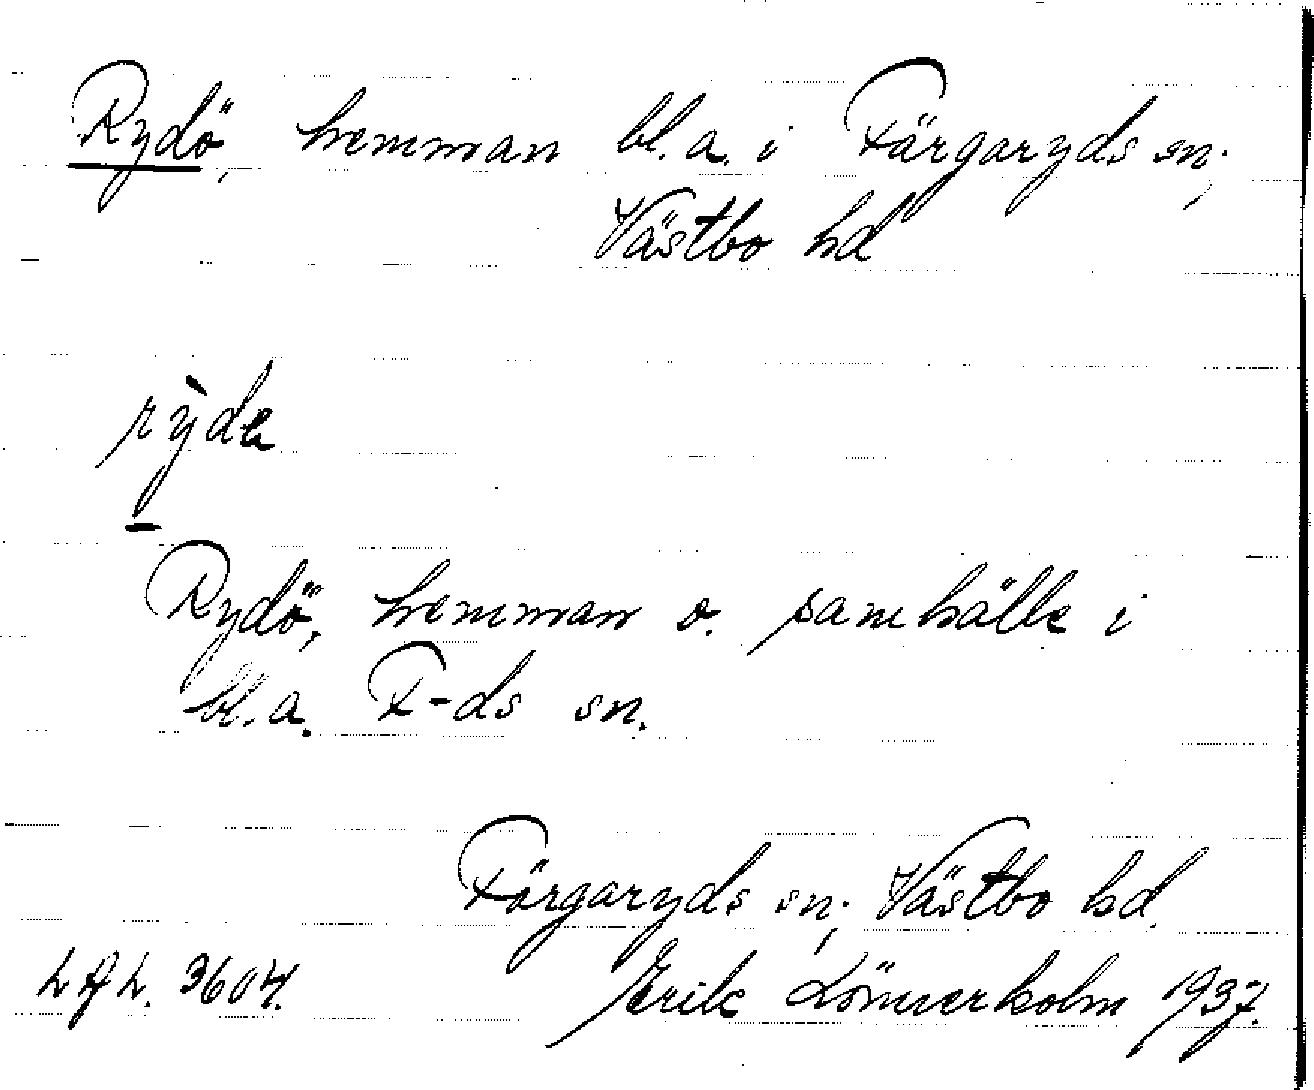 Rydö, hemman bl.a. i Färgaryds sn;
Västbo hd
Rydö, hemman o. samhälle i
bl.a. F-ds sn.
Färgaryds sn; Västbo hd.
3604.
Erik Lönnerholm 1937.